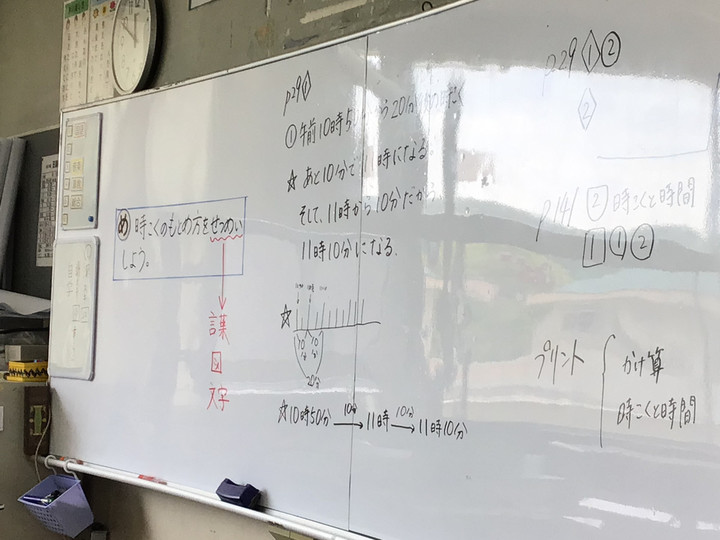 め 時こくのもとめ方をせつめい
しよう。
言葉
図
文字
p29 ①
① 午前10時5 から20分
☆ あと10分で11時になる。
そして、11時から10分だから、
11時10分になる。
☆
10分 10分
20分
☆10時50分 10分→ 11時 10分→ 11時10分
p29 ① ②
②
p141 2 時こくと時間
1 ① ②
プリント
かけ算
時こくと時間